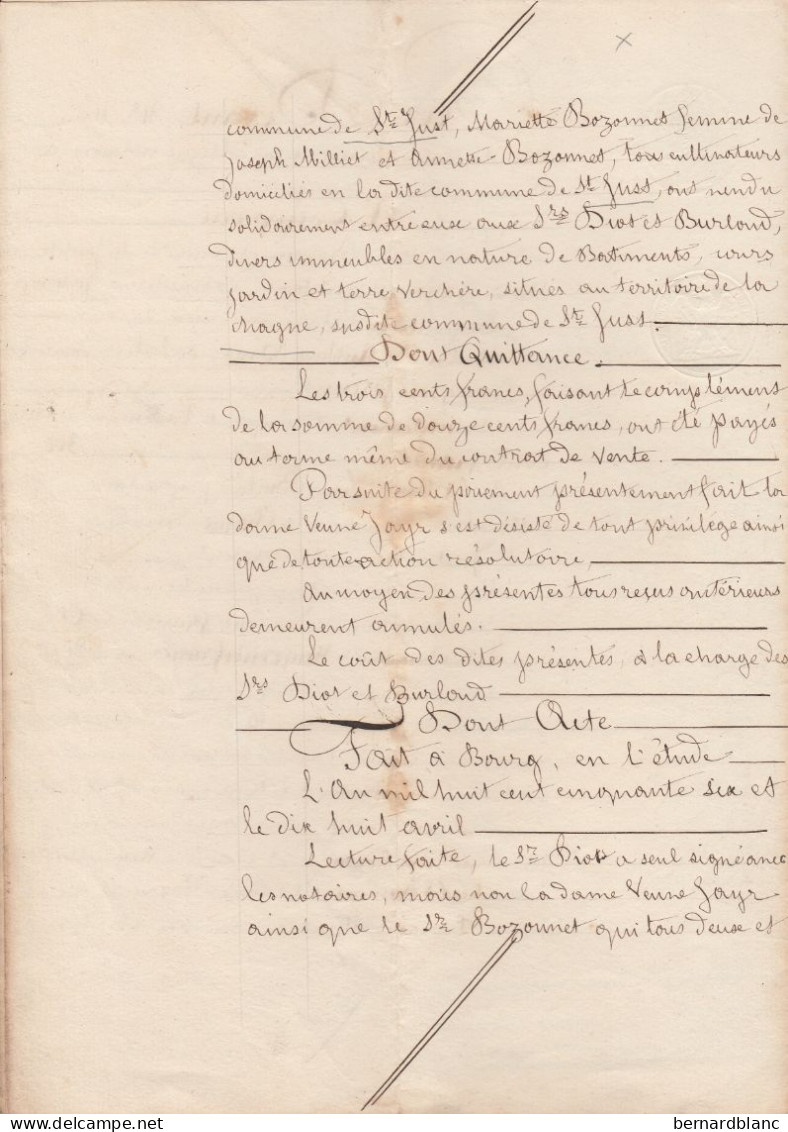 commune de St Just, Mariette Bozonnet femme de
Joseph Milliet et Annette Bozonnet, tous cultivateurs
domiciliés en la dite commune de St Just, ont vendu
solidairement entre eux aux Srs Diot et Burloud,
divers immeubles en nature de Batiments, cours
jardin et terre verchère, situés au territoire de la
Magne, susdite commune de St Just.
Dont Quittance.
Les trois cents francs, faisant le complément
de la somme de douze cents francs, ont été payés
au terme même du contrat de vente.
Par suite du paiement présentement fait la
dame Veuve Jayr s'est désisté de tout privilége ainsi
que de toute action résolutoire.
Au moyen des présentes tous reçus antérieurs
demeurent annulés.
Le coût des dites présentes, à la charge des
Srs Diot et Burloud
Dont Acte
Fait à Bourg, en l'étude
L'An mil huit cent cinquante six et
le dix huit avril
Lecture faite, le Sr Diot a seul signé avec
les notaires, mais non la dame Veuve Jayr
ainsi que le Sr Bozonnet qui tous deux et
bernardblanc